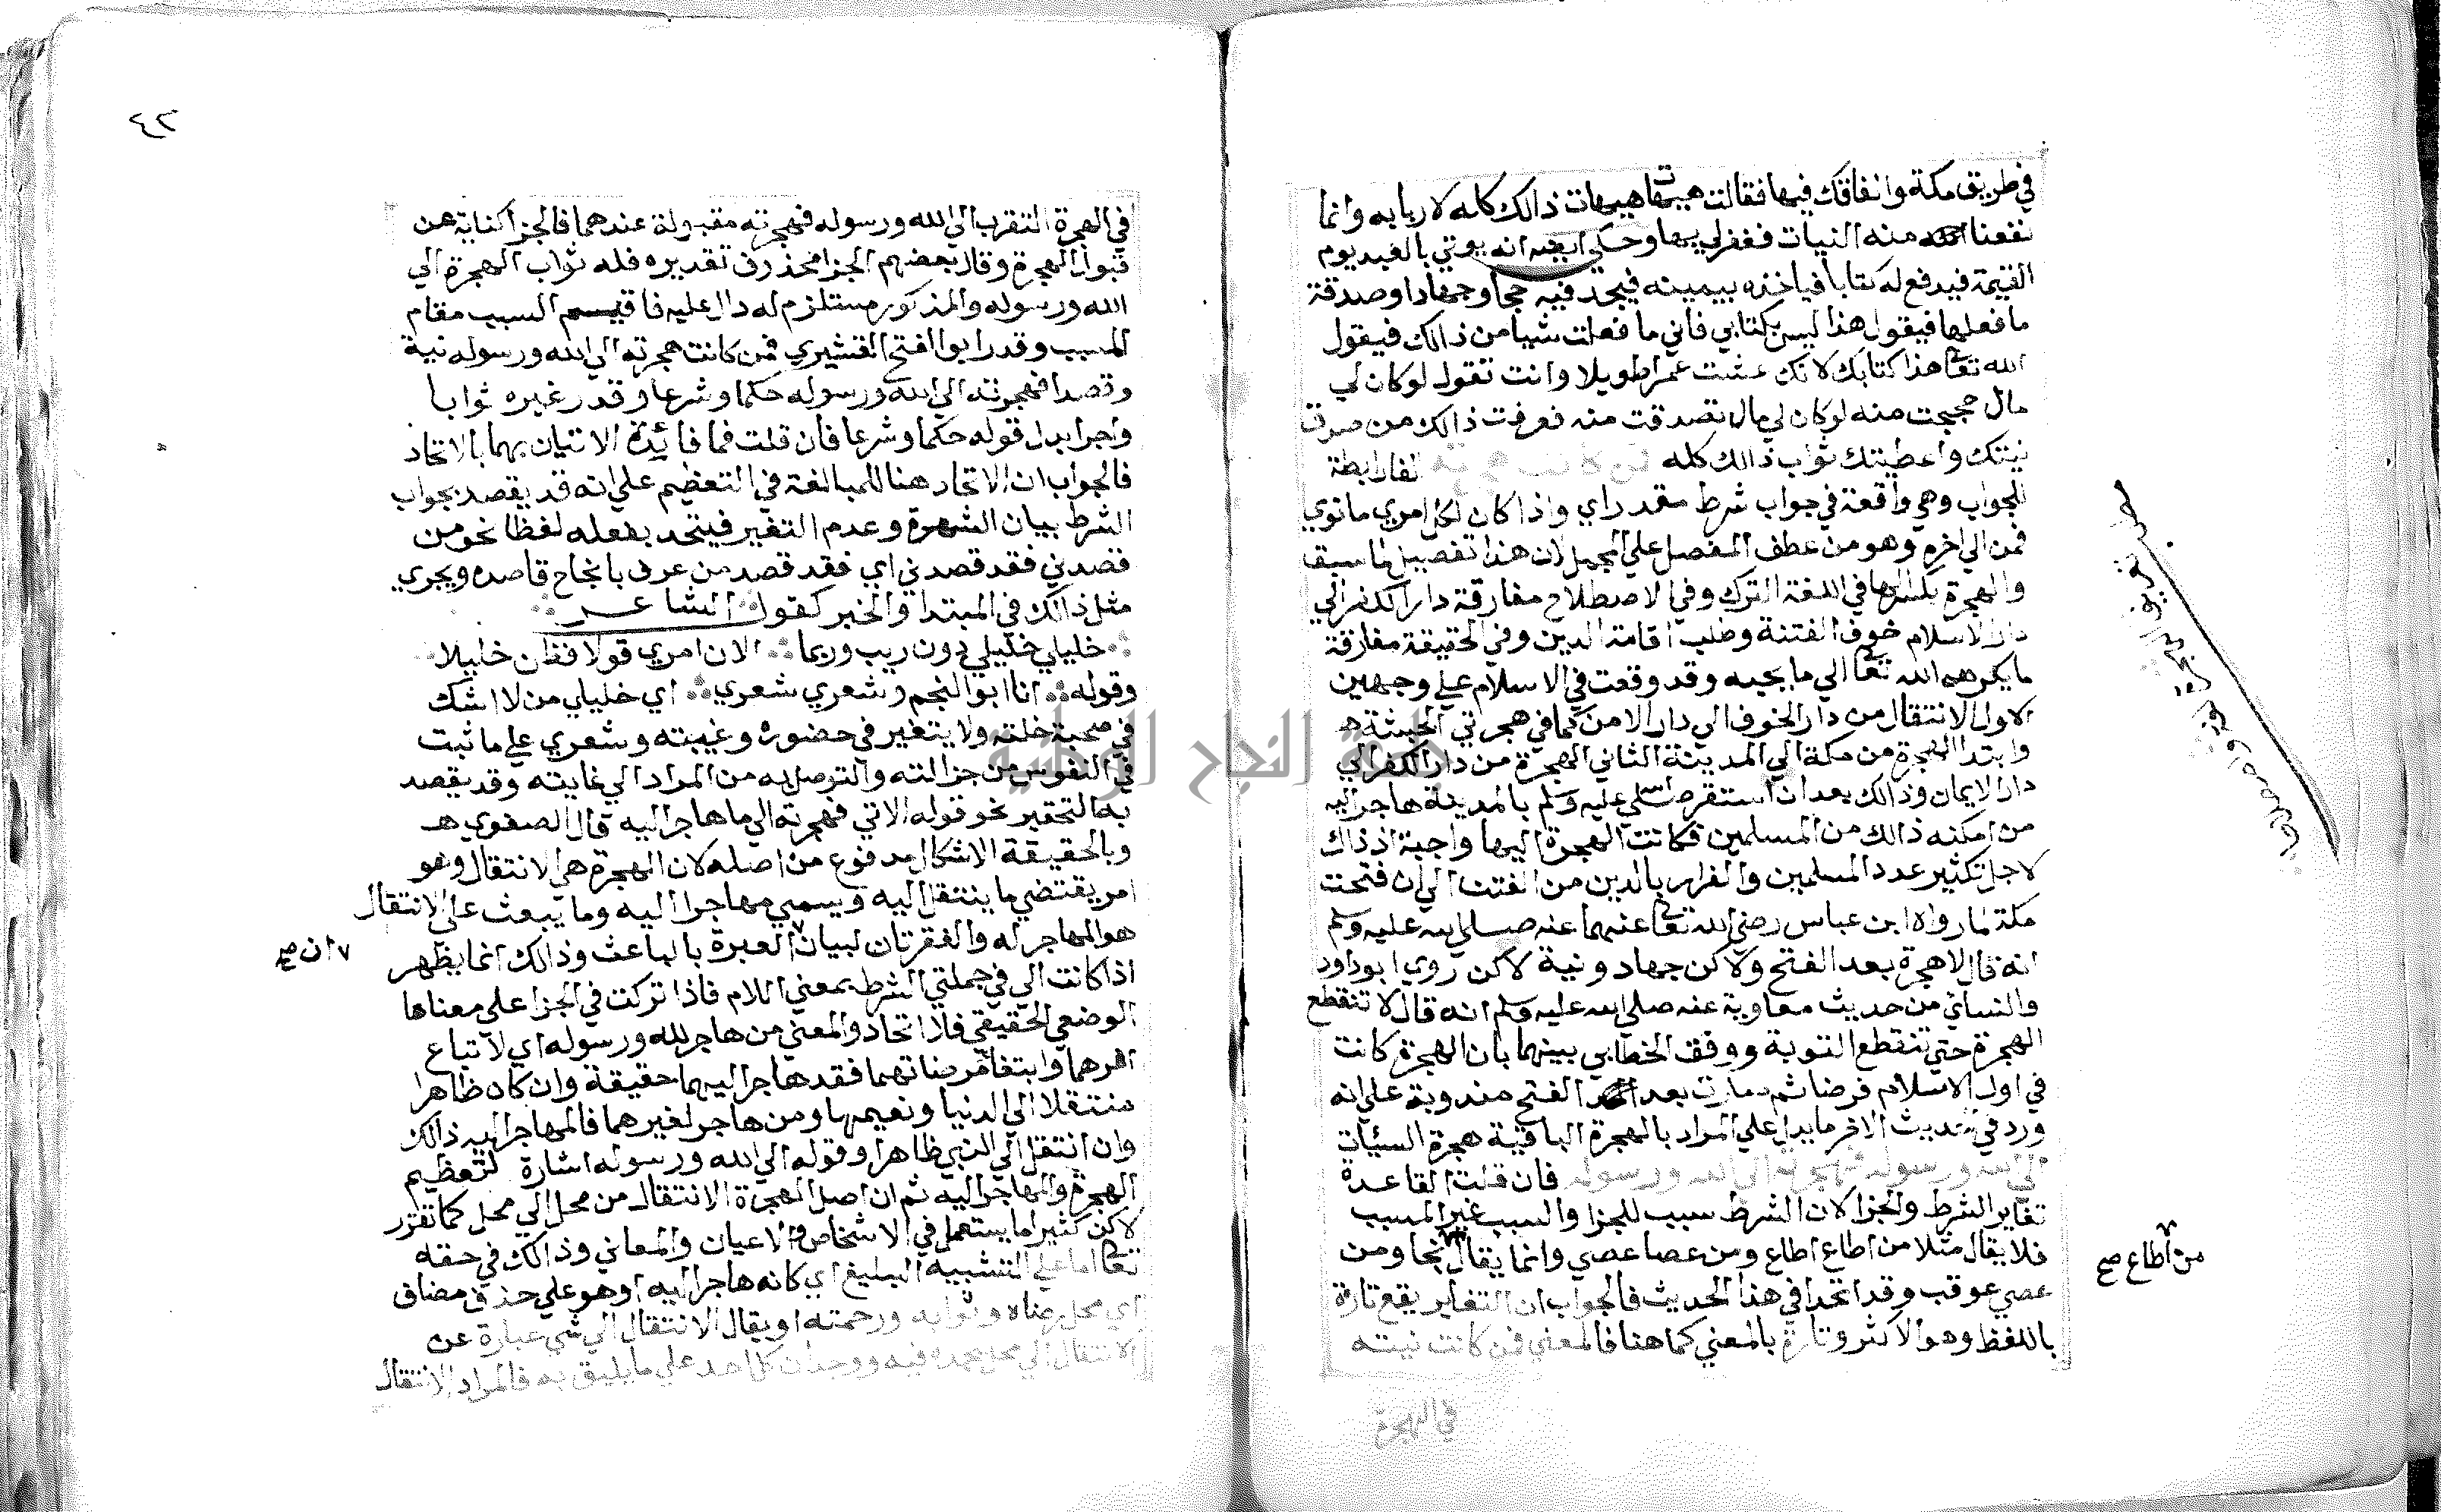 في طريق مكة وانفاقك فيها فقالت هيهات هيهات ذالك كله لاربابه وانما
نفعنا منه النيات فغفر لي بها وحكي ايضا انه يوتي بالعبد يوم
القيمة فيدفع له كتابا فياخذه بيمينه فيجد فيه حجا وجهادا وصدقة
ما فعلها فيقول هذا ليس بكتابي فاني ما فعلت شيا من ذالك فيقول
الله تعا هذا كتابك لانك عشت عمرا طويلا وانت تقول لو كان لي
مال حججت منه لو كان لي مال تصدقت منه فعرفت ذالك من صدق
نيتك واعطيتك ثواب ذالك كله فمن كانت هجرته الفا رابطة
للجواب وهي واقعة في جواب شرط مقدر اي واذا كان لكل امري ما نوي
فمن الي اخره وهو من عطف المفصل علي المجمل لان هذا تفصيل لما سبق
والهجرة بكسر الها في اللغة الترك وفي الاصطلاح مفارقة دار الكفر الي
دار الاسلام خوف الفتنة وطلب اقامة الدين وفي الحقيقة مفارقة
ما يكرهه الله تعا الي ما يحبه وقد وقعت في الاسلام علي وجهين
الاول الانتقال من دار الخوف الي دار الامن كما في هجرتي الحبشة
وابتدا الهجرة من مكة الي المدينة الثاني الهجرة من دار الكفر الي
دار الايمان وذالك بعد ان استقر صلي عليه وسلم بالمدينة هاجر اليه
من امكنه ذالك من المسلمين فكانت الهجرة اليها واجبة اذ ذاك
لاجل تكثير عدد المسلمين والفرار بالدين من الفتن الي ان فتحت
مكة لما رواه ابن عباس رضي الله تعا عنهما عنه صلي الله عليه وسلم
انه قال لا هجرة بعد الفتح ولاكن جهاد ونية لاكن روي ابو داود
والنسائي من حديث معاوية عنه صلي الله عليه وسلم انه قال لا تنقطع
الهجرة حتي تنقطع التوبة ووفق الخطابي بينهما بان الهجرة كانت
في اول الاسلام فرضا ثم صارت بعد الفتح مندوبة علي انه
ورد في الحديث الاخر ما يدل علي المراد بالهجرة الباقية هجرة السيئات
الي الله ورسوله فهجرته الي الله ورسوله فان قلت القاعدة
تغاير الشرط والجزا لان الشرط سبب للجزا والسبب غير المسبب
فلا يقال مثلا من اطاع اطاع ومن عصا عصي وانما يقال نجا ومن
عصي عوقب وقد اتحدا في هذا الحديث فالجواب ان التغاير يقع تارة
باللفظ وهو الاكثر وتارة بالمعني كما هنا فالمعني فمن كانت نيته
في الهجرة
من اطاع صح
٤٣
في الهجرة التقرب الي الله ورسوله فهجرته مقبولة عندهما فالجزا كناية عن
قبول الهجرة وقال بعضهم الجزا محذوف تقديره فله ثواب الهجرة الي
الله ورسوله والمذكور مستلزم له دال عليه فاقيم السبب مقام
المسبب وقدر ابو الفتح القشيري فمن كانت هجرته الي الله ورسوله نية
وقصدا فهجرته الي الله ورسوله حكما وشرعا وقدر غيره ثوابا
واجرا بدل قوله حكما وشرعا فان قلت فما فائدة الاتيان بهما بالاتحاد
فالجواب ان الاتحاد هنا للمبالغة في التعظيم علي انه قد يقصد بجواب
الشرط بيان الشهرة وعدم التغير فيتحد بفعله لفظا نحو من
قصدني فقد قصدني اي فقد قصد من عرف بانجاح قاصده ويجري
مثل ذالك في المبتدا والخبر كقول الشاعر
خليلي خليلي دون ريب وربما الان امري قولا فظن خليلا
وقوله انا ابو النجم وشعري شعري اي خليلي من لا اشك
في صحبة خلته ولا يتغير في حضوره وغيبته وشعري علي ما ثبت
في النفوس من جزالته والتوصل به من المراد الي غايته وقد يقصد
به التحقير نحو قوله الاتي فهجرته الي ما هاجر اليه قال الصفوي
وبالحقيقة الاشكال مدفوع من اصله لان الهجرة هي الانتقال وهو
امر يقتضي ما ينتقل اليه ويسمي مهاجرا اليه وما يبعث علي الانتقال
هو المهاجر له والفقرتان لبيان العبرة بالباعث وذالك انما يظهر
ان صح
اذا كانت الي في جملتي الشرط بمعني اللام فاذا تركت في الجزا علي معناها
الوضعي الحقيقي فلا اتحاد والمعني من هاجر لله ورسوله اي لاتباع
امرهما وابتغا مرضاتهما فقد هاجر اليهما حقيقة وان كان ظاهرا
منتقلا الي الدنيا ونعيمها ومن هاجر لغيرهما فالمهاجر اليه ذالك
وان انتقل الي النبي ظاهرا وقوله الي الله ورسوله اشارة لتعظيم
الهجرة والمهاجر اليه ثم ان اصل الهجرة الانتقال من محل الي محل كما تقرر
لاكن كثيرا ما يستعمل في الاشخاص والاعيان والمعاني وذالك في حقه
تعا اما علي التشبيه البليغ اي كانه هاجر اليه او هو علي حذف مضاف
اي محل رضاه وثوابه ورحمته او يقال الانتقال الي شي عبارة عن
الانتقال الي محل يجده فيه ووجدان كل احد علي ما يليق به فالمراد الانتقال
جامعة النجاح الوطنية